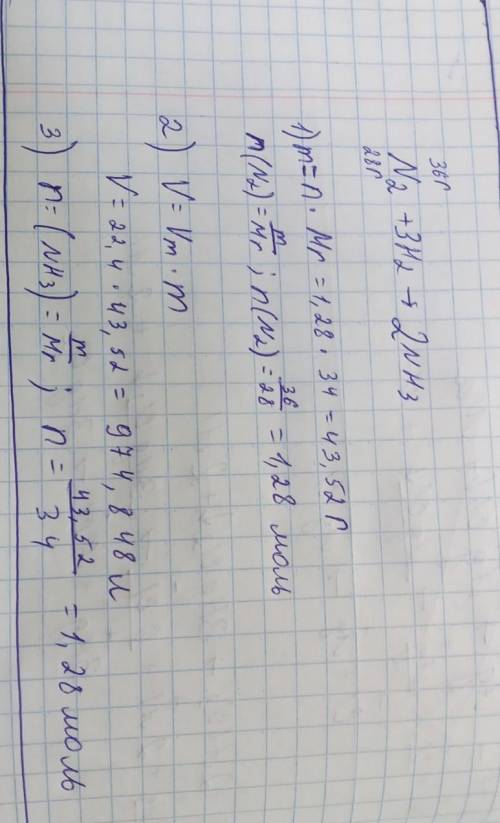 36г
N2 + 3H2 → 2NH3
28г
1) m = n · Mr = 1,28 · 34 = 43,52 г
n(N2) = m/Mr ; n(N2) = 36/28 = 1,28 моль
2) V = Vm · m
V = 22,4 · 43,52 = 974,848 л
3) n = (NH3) = m/Mr ; n = 43,52/34 = 1,28 моль